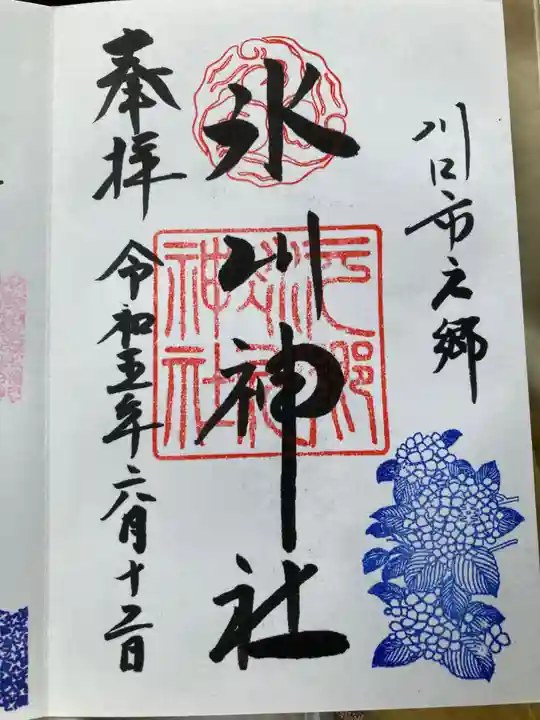 川口市元郷
氷川神社
奉拝
令和五年六月十二日